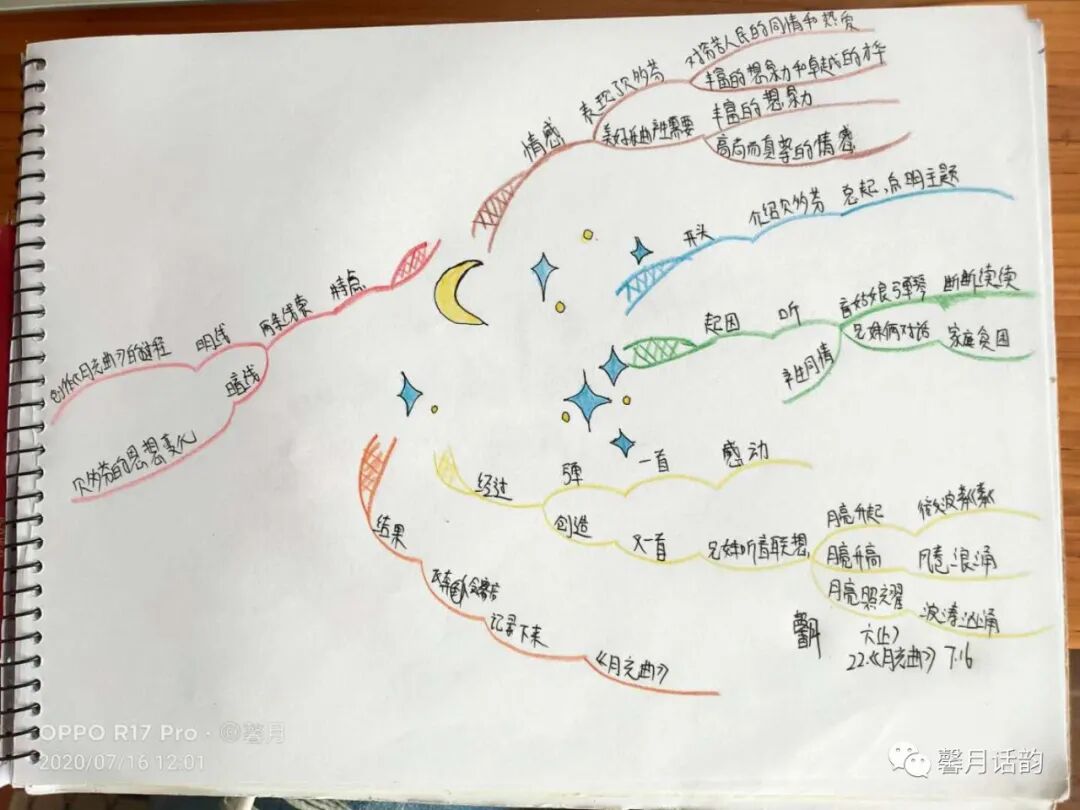 情感
表现了贝多芬
对穷苦人民的同情和热爱
丰富的想象力和卓越的才华
美好乐曲产生需要
丰富的想象力
高尚而真挚的情感
开头
介绍贝多芬
总起,点明主题
起因
听
盲姑娘弹琴
断断续续
兄妹俩对话
家庭贫困
产生同情
经过
弹
一首
感动
创造
又一首
兄妹听音联想
月亮升起
微波粼粼
月亮升高
风卷浪涌
月亮照耀
波涛汹涌
结果
记录下来
《月光曲》
特点
两条线索
明线
创作《月光曲》的过程
暗线
贝多芬的思想变化
馨月
六(上)
22.《月光曲》 7.16
OPPO R17 Pro · @馨月
2020/07/16 12:01
馨月话韵